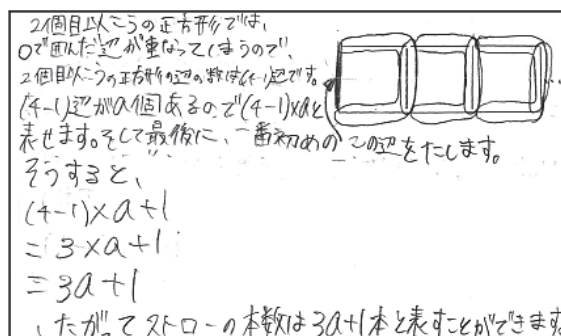 2個目以こうの正方形では、
○で囲んだ辺が重なってしまうので、
2個目以こうの正方形の辺の数は(4-1)辺です。
(4-1)辺がa個あるので(4-1)×aと
表せます。そして最後に、一番初めのこの辺をたします。
そうすると、
(4-1)×a+1
=3×a+1
=3a+1
したがってストローの本数は3a+1本と表すことができます